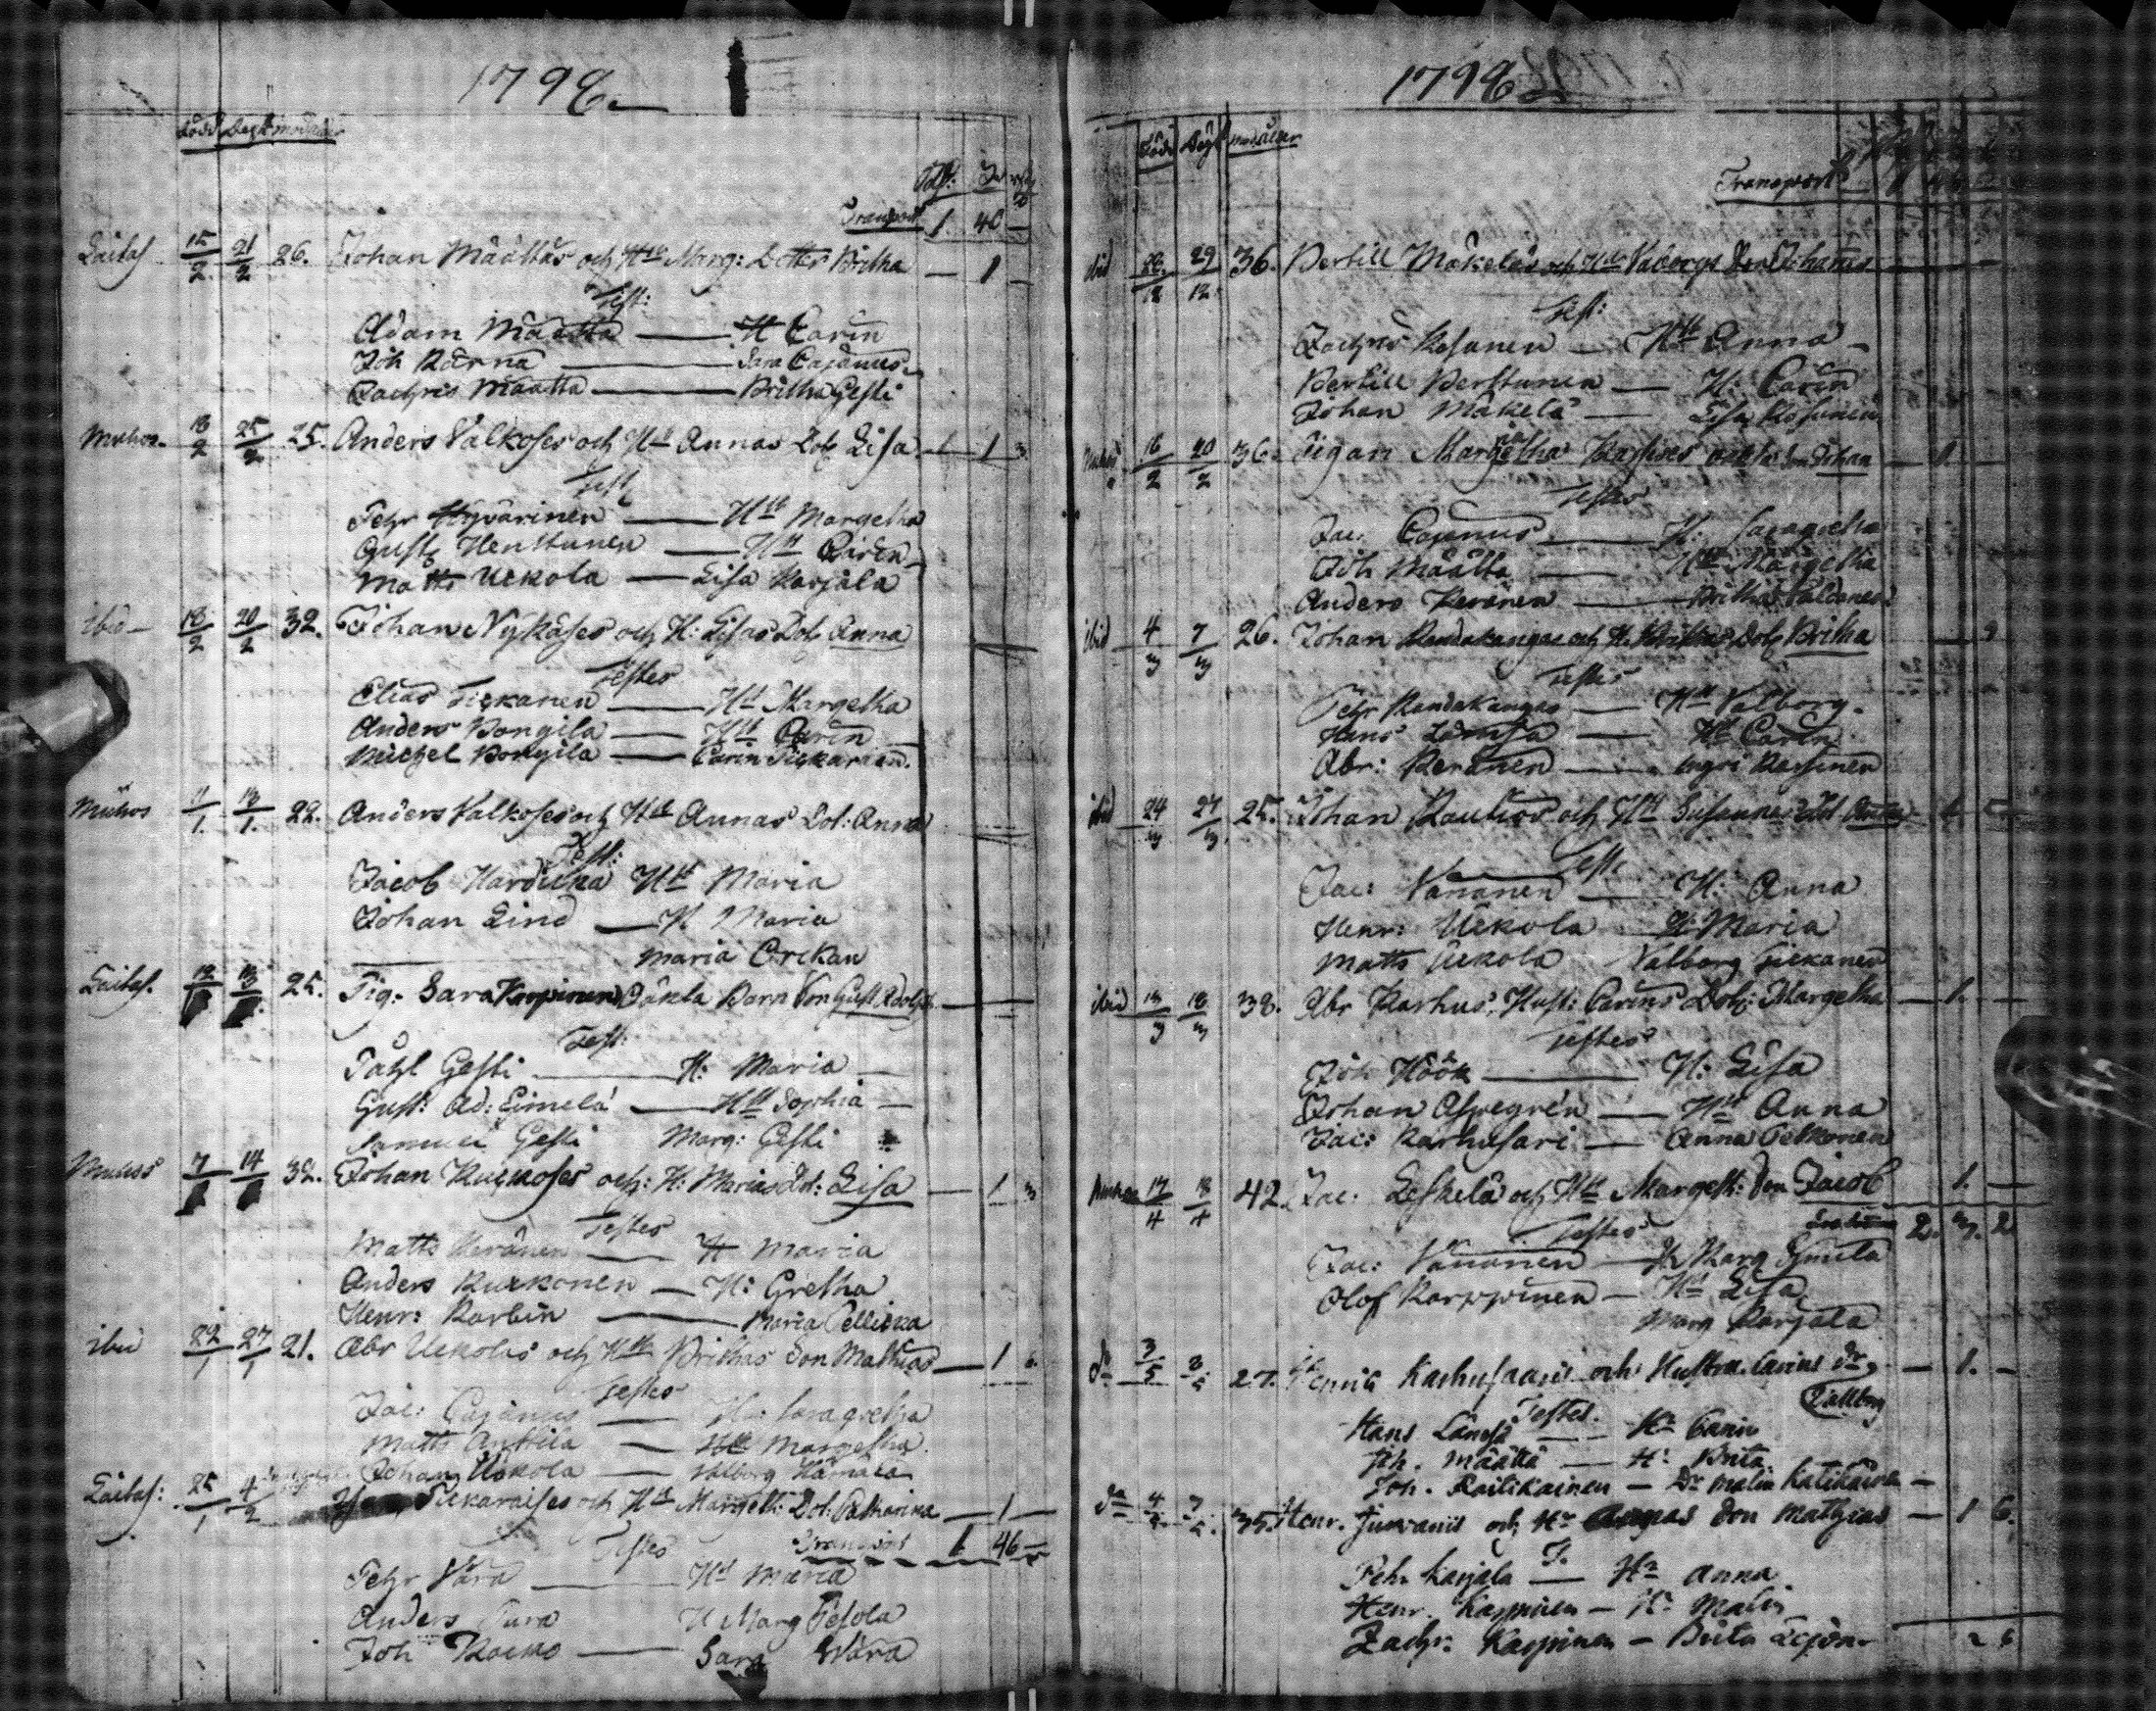 1798
Född Döpt mod: ålder
Transport 1 40 —
Laitas. 15/2 21/2 26. Johan Määttäs och H:u Marg: Dotter Britha — 1 —
Test:
Adam Määttä — H Carin
Joh Kärnä — Sara Cajanus
Zachris Määttä — Britha Gesti
Muhos 18/2 25/2 25. Anders Valkoses och H:u Annas Dot Lisa — 1 3
Test
Pehr Hyvärinen — H:u Margetha
Gust Henttunen — H:u Carin
Matts Uckola — Lisa Karjala
ibid — 18/2 20/2 32. Johan Nykäses och H: Lisas Dot Anna
Testes
Elias Tickanen — H:u Margetha
Anders Pongila — H:u Carin
Michel Pongila — Carin Tickanen.
Muhos 11/1. 13/1. 22. Anders Valkoses och H:u Annas Dot: Anna
Test:
Jacob Hardicka H:u Maria
Johan Lind — H. Maria
Maria Orckan
Laitas. 12 13 25. Pig: Sara Karpinens Oäkta Barn Son Gust. Adolph —
Test:
Påhl Gesti — H: Maria —
Gust: Ad: Limelä — H:u Sophia —
Samuel Gesti Marg: Gesti
Muhos 7 14 32. Johan Kuckoses och: H: Marias Dot: Lisa — 1 3
Testes
Matts Keränen — H Maria
Anders Kuckonen — H: Gretha
Henr: Korbin — Maria Pellicka
ibid 22/1 27/1 21. Abr Uckolas och H:u Brithas Son Mathias — 1 6.
Testes
Jac: Cajanus — H: Saragretha
Matts Anttila — H:u Margetha.
Johan Uckola — Valborg Hämälä
Laitas: 25/1 4/2 Tickaraises och H:u Margeth: Dot: Catharina — 1 —
Testes Transport 1 46 —
Pehr Vära — H:u Maria
Anders Tura H Marg Pesola
Joh Kocko — Sara Wära
1798
Född Döpt mod: ålder
Transport
ibid 26./12 29/12. 36. Bertill Mäkeläs och H:u Vaborgs Son Johannes
Test:
Zachris Kosunen — H:u Anna —
Bertill Perttunen — H: Carin
Johan Mäkelä — Lisa Kosunen
Muhos 16/2 20/2 36. Pigan Margetha oäkta Son Johan — 1. —
Testes
Jac: Cajanus — H: Saragretha
Joh Määttä — H:u Margetha
Anders Keränen — Britha Paldanen
ibid 4/3 7/3 26. Johan Kandakangas och H. Brithas Dot Britha
Testes
Pehr Kandakangas — H:u Valborg.
Hans Lämsä — H: Carin
Abr: Keränen — Ingri Kessinen
ibid 24/3 27/3. 25. Johan Rautios och H:u Susannas Dot Anna
Test
Jac: Vänänen — H: Anna
Henr: Uckola — H: Maria
Matts Uckola Valborg Tickanen
ibid 13/3 18/3 38. Abr Karhus, Hust: Carins Dot: Margetha — 1. —
Testes
Joh Höök — H: Lisa
Johan Aspegrén — H:u Anna
Jac: Karhusari — Anna Pelkonen
Muhos 17/4 18/4 42. Jac: Leskelä och H:u Margeth: Son Jacob 1. —
Testes 2. 3. 2
Jac: Vänänen — H Marg Gumla
Olof Karppinen — H:u Lisa
Marg Karjala
do 3/5 27. Henric Karhusaaris och Hustru Carins dr Wallborg — 1. —
Testes.
Hans Lämsä — Hu Carin
Joh. Määttä — H: Brita
Joh. Kaitikainen — Dr Malin Katikäinen —
do 35. Henr. Juwanis och Hu Annas Son Mathias — 1 6.
T.
Pehr Karjala — Hu Anna
Henr. Karppinen — Hr Malin
Zachr: Karpinen — Brita Lejon
2 6